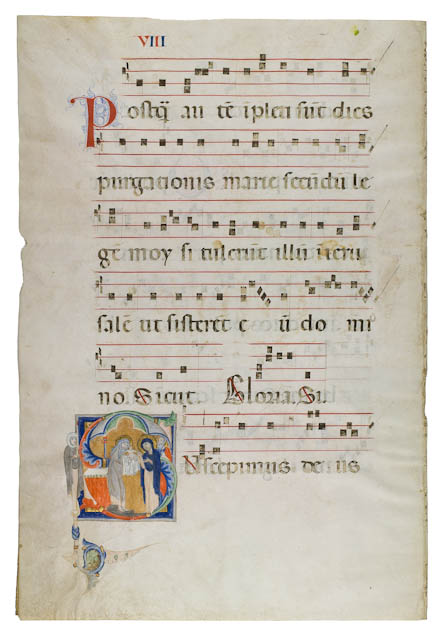 VIII
Postq̃ au tẽ ĩpleti sũt dies
purgationis marie secũdũ le
gẽ moy si tulerũt illũ ĩ ieru
salẽ ut sisterẽt e ũ do mi
no. Sicut. Gloria. Su
SUscepimus de us